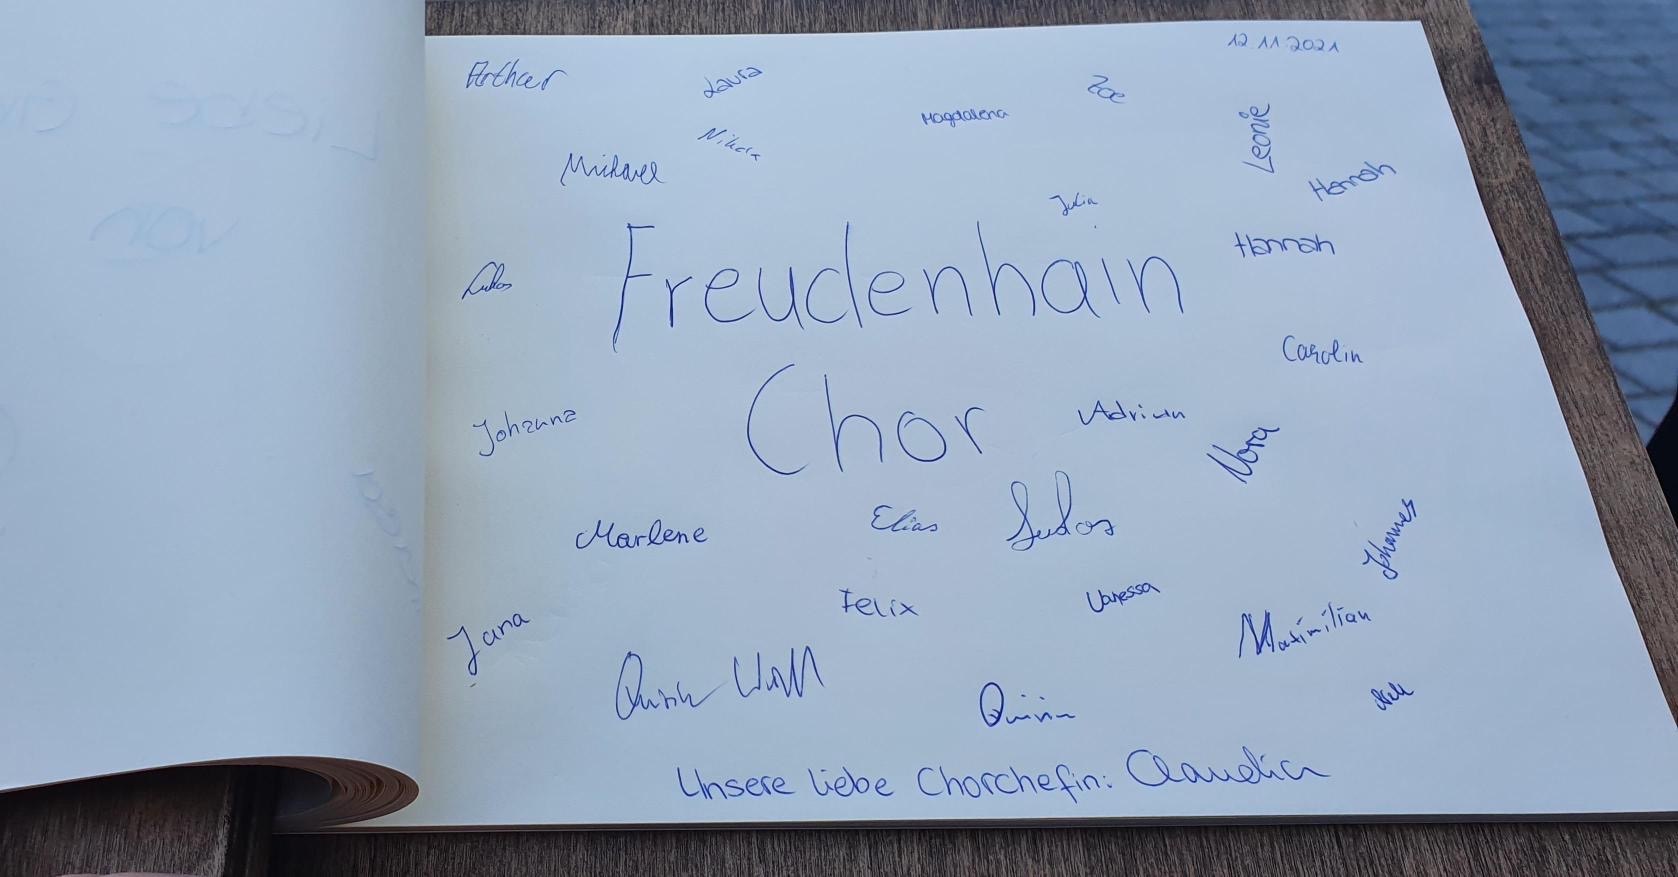 12.11.2021
Arthur
Laura
Zoe
Magdalena
Leonie
Nikola
Michael
Hannah
Julia
Hannah
Freudenhain
Lukas
Carolin
Chor
Adrian
Johanna
Nora
Marlene
Elias
Lukas
Johannes
Felix
Vanessa
Jana
Maximilian
Quirin
Quirin
Unsere liebe Chorchefin: Claudia